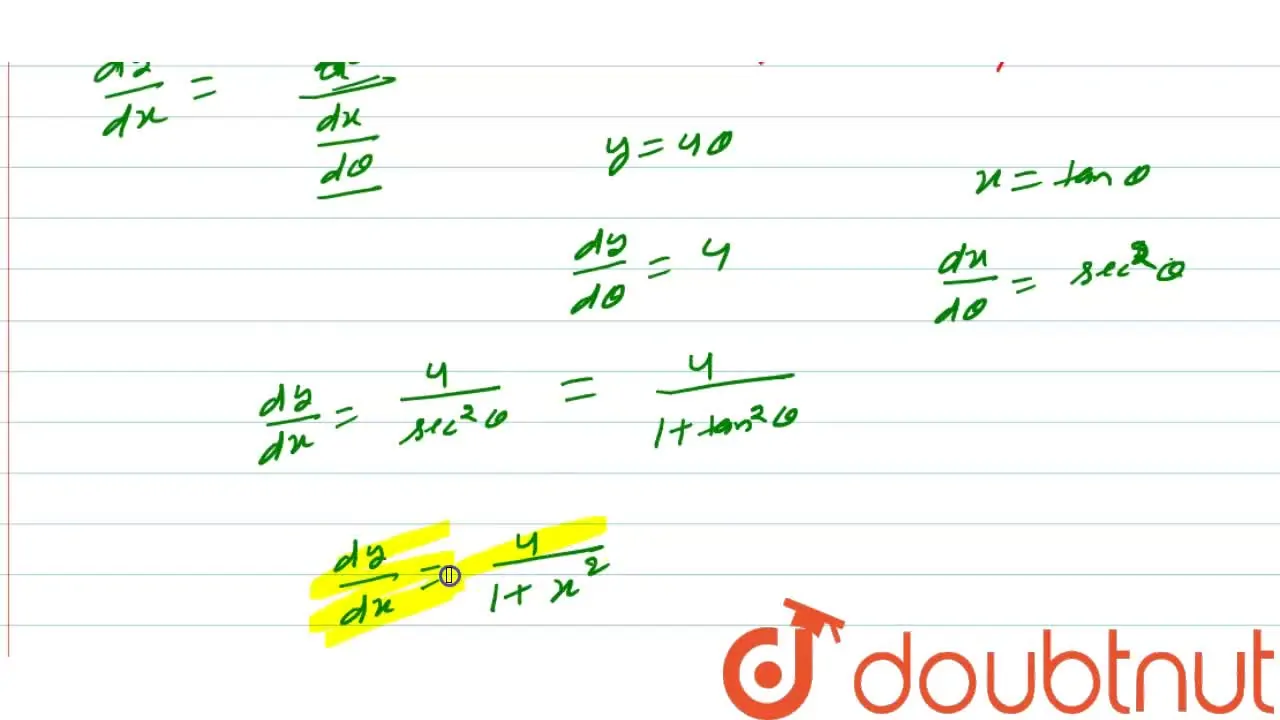 dy/dx = / dx/dθ
y = 4θ
x = tan θ
dy/dθ = 4
dx/dθ = sec²θ
dy/dx = 4/sec²θ = 4/1+tan²θ
dy/dx = 4/1+x²
doubtnut